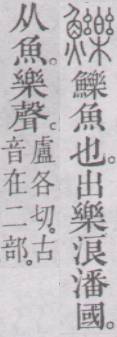 鱳鱳魚也。出樂浪潘國。
从魚。樂聲。盧各切。古
音在二部。